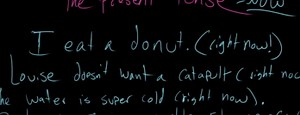 The present tense now
I eat a donut. (right now!)
Louise doesn't want a catapult (right now
he water is super cold (right now).